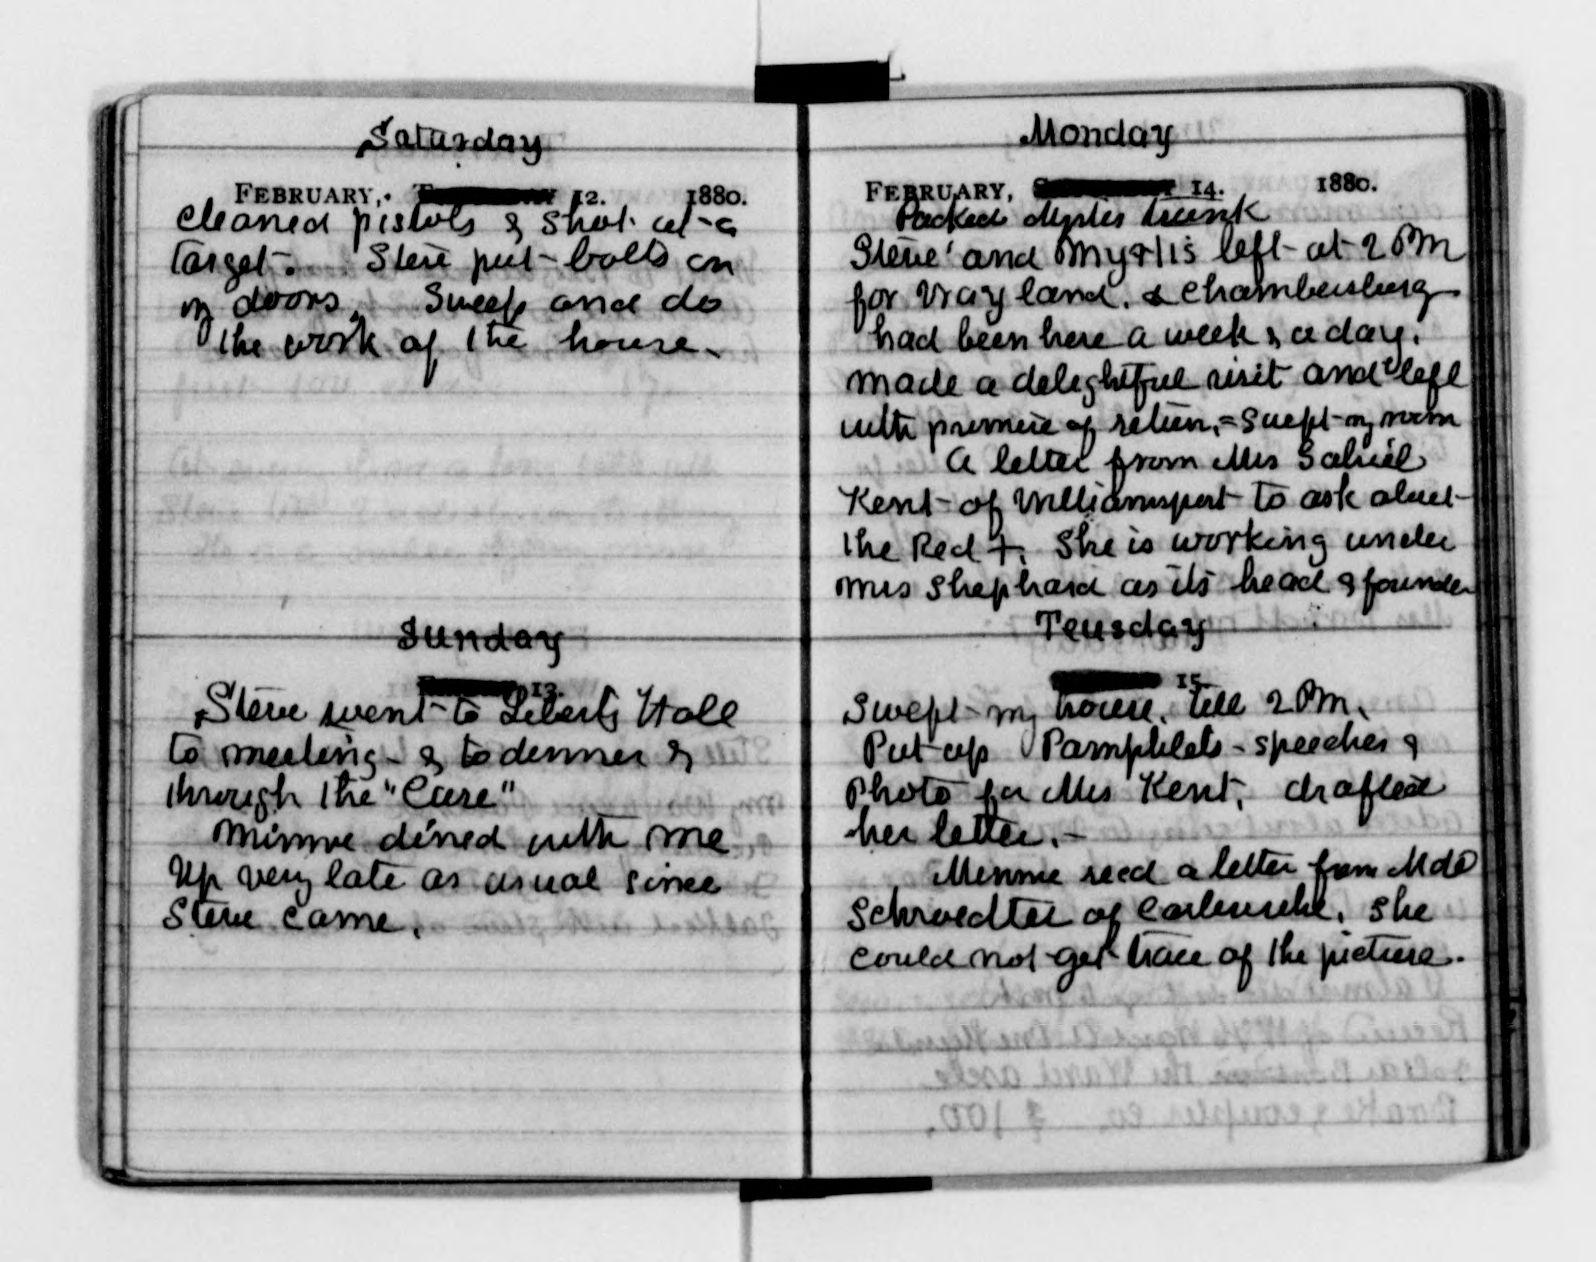 Saturday
FEBRUARY, 12. 1880.
Cleaned pistols & shot at a
target. Steve put bolts on
my doors, Sweep and do
the work of the house.
Sunday
13.
Steve went to Liberty Hall
to meeting - & to dinner &
through the "Cure"
Minnie dined with me
Up very late as usual since
Steve came.
Monday
FEBRUARY, 14. 1880.
Packed trunk
Steve and Myrtis left at 2 PM
for Wayland. & Chambersburg
had been here a week & a day.
made a delightful visit and left
with promise of return, = Swept my room
A letter from Mrs Gabriel
Kent of Williamsport to ask about
the Red +. She is working under
Mrs Shephard as its head & founder
Teusday
15.
Swept my house, till 2 PM.
Put up Pamphlets - speeches &
Photo for Mrs Kent, drafted
her letter. -
Minnie recd a letter from Mde
Schroedter of Carlsruhe. She
could not get trace of the picture.